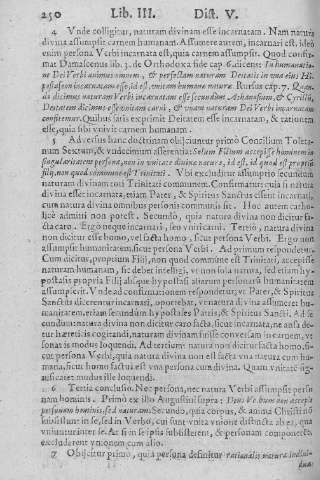 250 Lib. III. Dist. V.
4 Vnde colligitur, naturam divinam esse incarnatam. Nam natura
divina assumpsit carnem humanam. Assumere autem, incarnari est. ideò
enim persona Verbi incarnata est, quia carnem assumpsit. Quod confir-
mat Damascenus lib. 3. de Orthodoxa fide cap. 6. dicens: In humanatio-
ne Dei Verbi animus omnem, & perfectam naturam Deitatis in una eius Hi-
postaseon incarnatam esse, id est, unitam humanæ naturæ. Rursus cap. 7. Quan-
do dicimus naturam Verbi incarnatam esse secundum Athanasium, & Cyrillũ,
Deitatem dicimus esse unitam carni, & unam naturam Dei Verbi incarnatam
confitemur. Quibus satis exprimit Deitatem esse incarnatam, & rationem
esse, quia sibi vnivit carnem humanam.
5 Adversus hanc doctrinam obijciuntur primò Concilium Toleta-
num Sextum, & vndecimum asserentia: Solum Filium accepisse hominem in
singularitatem personæ, non in unitate divinæ naturæ, id est, id quod est propriũ
filij, non quod commune est Trinitati. Vbi excluditur assumptio secundum
naturam divinam toti Trinitati communem. Confirmatur: quia si natura
divina esset incarnata, etiam Pater, & Spiritus Sanctus essent incarnati,
cum natura divina omnibus personis communis sit. Hoc autem catho-
licè admitti non potest. Secundò, quia natura divina non dicitur fa-
cta caro. Ergo neque incarnari, seu vniri carni. Tertiò, natura divina
non dicitur esse homo, vel facta homo, sicut persona Verbi. Ergo non
assumpsit humanitatem sicut persona Verbi. Ad primum respondetur:
Cum dicitur, proprium Filij, non quod commune est Trinitati, accepisse
naturam humanam, sic debet intelligi, vt non sola natura, sed etiam hy-
postasis propria Filij absque hypostasi aliarum personarũ humanitatem
assumpserit. Vnde ad confirmationem respondetur; vt Pater, & Spiritus
Sanctus dicerentur incarnati, oportebat, vt natura divina assumeret hu-
manitatem, etiam secundum hypostases Patris, & Spiritus Sancti. Ad se-
cundum: natura divina non dicitur caro facta, sicut incarnata, ne ansa de-
tur hæreticis cogitandi, naturam divinam fuisse conversam in carnem, vt
sonat is modus loquendi. Ad tertium: natura non dicitur facta homo, si-
cut persona Verbi, quia natura divina non est facta vna natura cum hu-
mana, sicut homo factus est vna persona cum divina. Quam vnitatẽ sig-
nificaret modus ille loquendi.
6 Tertia conclusio. Nec persona, nec natura Verbi assumpsit perso-
nam hominis. Primò ex illo Augustini supra: Deus Verbum non accepit
personam hominis, sed naturam. Secundò, quia corpus, & anima Christi nõ
subsistunt in se, sed in Verbo, cui sunt vnita vnione distincta ab ea, qua
vniuntur inter se. At si in se ipsis subsisterent, & personam componerẽt,
excluderent vnionem cum alio.
7 Obijcitur primo, quia persona definitur rationalis naturæ indivi-
dua